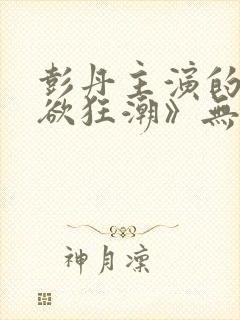 彭丹主演的
欲狂潮》無
神月凜